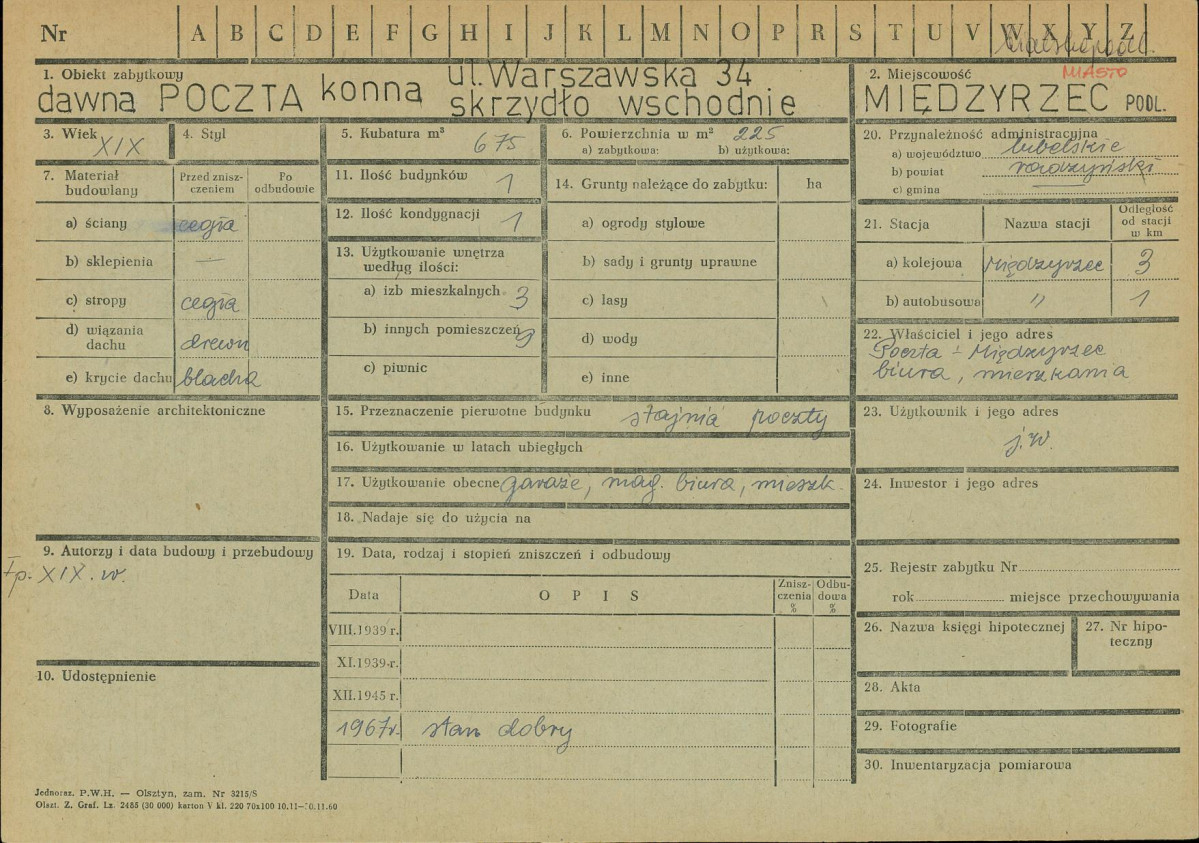 Nr A B C D E F G H I J K L M N O P R S T U V W X Y Z
MIASTO
1. Obiekt zabytkowy
dawna POCZTA konna ul. Warszawska 34
skrzydło wschodnie
2. Miejscowość
MIĘDZYRZEC PODL.
3. Wiek
XIX
4. Styl
5. Kubatura m³
675
6. Powierzchnia w m² 225
a) zabytkowa: b) użytkowa:
7. Materiał budowlany
Przed zniszczeniem
Po odbudowie
a) ściany cegła
b) sklepienia —
c) stropy cegła
d) wiązania dachu drewn
e) krycie dachu blacha
8. Wyposażenie architektoniczne
9. Autorzy i data budowy i przebudowy
Ip. XIX. w.
10. Udostępnienie
11. Ilość budynków 1
12. Ilość kondygnacji 1
13. Użytkowanie wnętrza
według ilości:
a) izb mieszkalnych 3
b) innych pomieszczeń 9
c) piwnic
14. Grunty należące do zabytku: ha
a) ogrody stylowe
b) sady i grunty uprawne
c) lasy
d) wody
e) inne
15. Przeznaczenie pierwotne budynku stajnia poczty
16. Użytkowanie w latach ubiegłych
17. Użytkowanie obecne garaże, mag. biura, mieszk.
18. Nadaje się do użycia na
19. Data, rodzaj i stopień zniszczeń i odbudowy
Data OPIS Zniszczenia % Odbudowa %
VIII.1939 r.
XI.1939 r.
XII.1945 r.
1967r. stan dobry
20. Przynależność administracyjna
a) województwo lubelskie
b) powiat radzyński
c) gmina —
21. Stacja Nazwa stacji Odległość od stacji w km
a) kolejowa Międzyrzec 3
b) autobusowa " 1
22. Właściciel i jego adres
Poczta - Międzyrzec
biura, mieszkania
23. Użytkownik i jego adres
j.w.
24. Inwestor i jego adres
25. Rejestr zabytku Nr
rok miejsce przechowywania
26. Nazwa księgi hipotecznej
27. Nr hipoteczny
28. Akta
29. Fotografie
30. Inwentaryzacja pomiarowa
Jednoraz. P.W.H. — Olsztyn, zam. Nr 3215/S
Olszt. Z. Graf. Lz. 2485 (30 000) karton V kl. 220 70x100 10.11—10.11.60